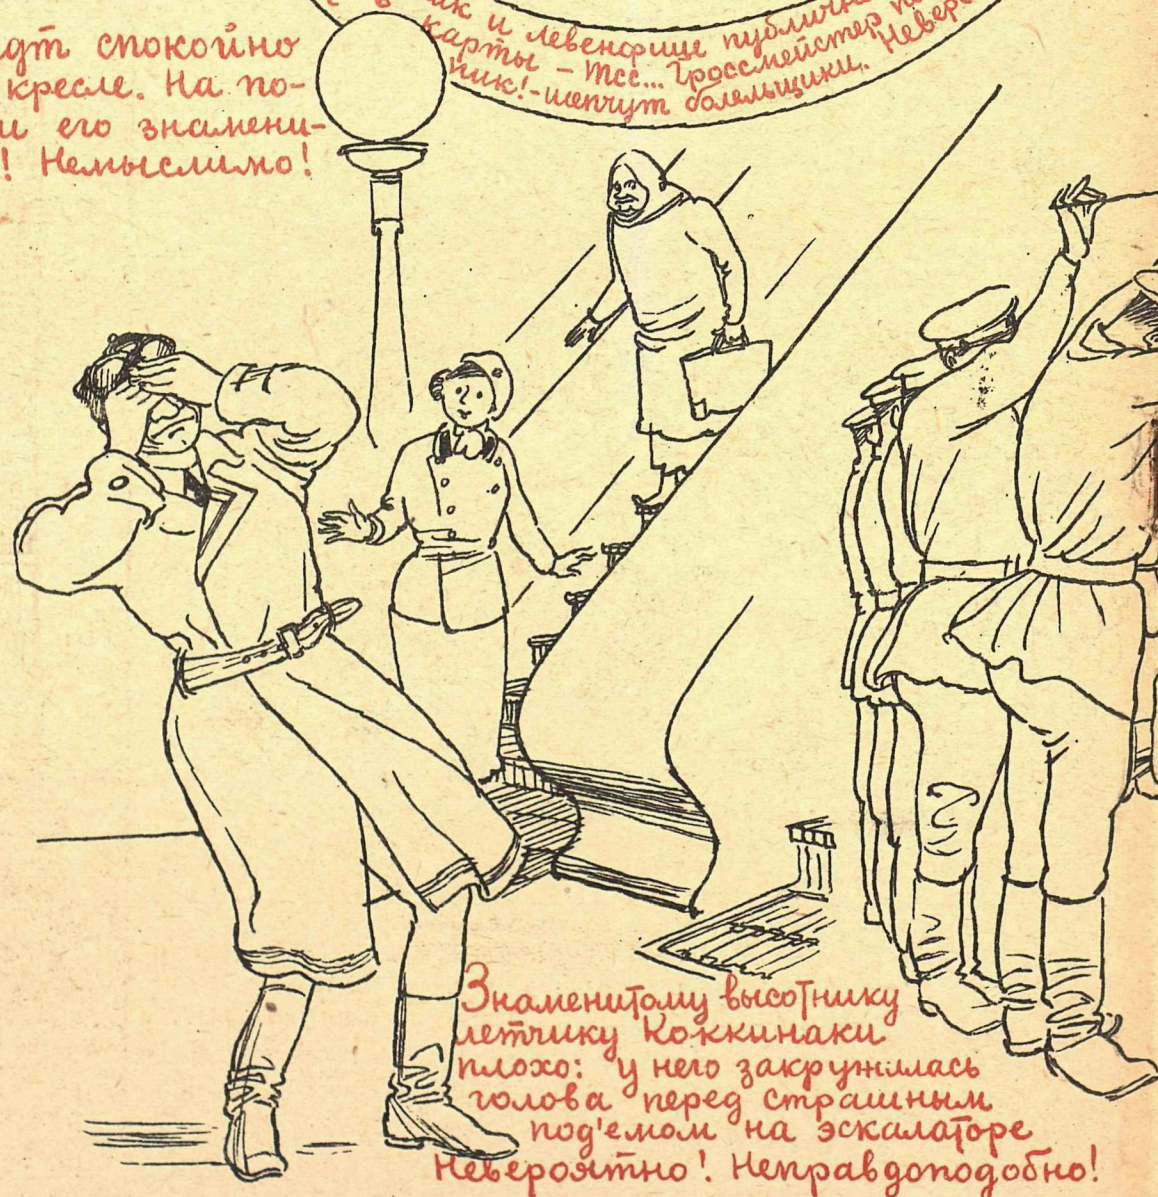 спокойно
кресле. На по-
его знамени-
! Немыслимо!
и левенфиш публично
карты – Тсс... Гроссмейстер
ник! – шепчут болельщики. Неверо
Знаменитому высотнику
летчику Коккинаки
плохо: у него закружилась
голова перед страшным
под'емом на эскалаторе
Невероятно! Неправдоподобно!